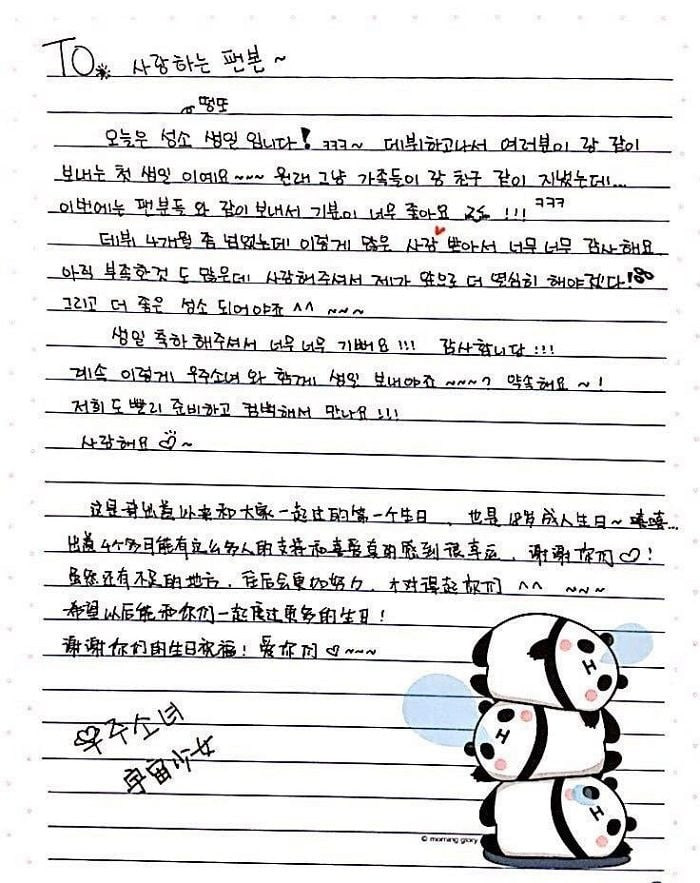 TO. 사랑하는 팬분~
떵또
오늘은 성소 생일 입니다! ㅋㅋㅋ~ 데뷔하고나서 여러분이 랑 같이
보내는 첫 생일 이예요~~~ 원래 그냥 가족들이 랑 친구 같이 지냈는데...
이번에는 팬분들 와 같이 보내서 기분이 너무 좋아요 !!! ㅋㅋㅋ
데뷔 4개월 좀 넘었는데 이렇게 많은 사랑 뽀아서 너무 너무 감사해요
아직 부족한것 도 많은데 사랑해주셔서 제가 앞으로 더 열심히 해야겠다!
그리고 더 좋은 성소 되어야죠 ^^ ~~~
생일 축하 해주셔서 너무 너무 기뻐요 !!! 감사합니당 !!!
계속 이렇게 우주소녀 와 함께 생일 보내야죠 ~~~? 약속해요 ~!
저희 도 빨리 준비하고 컴백해서 만나요 !!!
사랑해요 ♡~
这是我出道以来和大家一起过的第一个生日，也是18岁成人生日~ 嘻嘻...
出道4个多月能有这么多人的支持和喜爱真的感到很幸运，谢谢你们♡!
虽然还有不足的地方，往后会更加努力，才对得起你们 ^^ ~~~
希望以后能和你们一起度过更多的生日!
谢谢你们的生日祝福! 爱你们♡~~~
♡우주소녀
宇宙少女
© morning glory